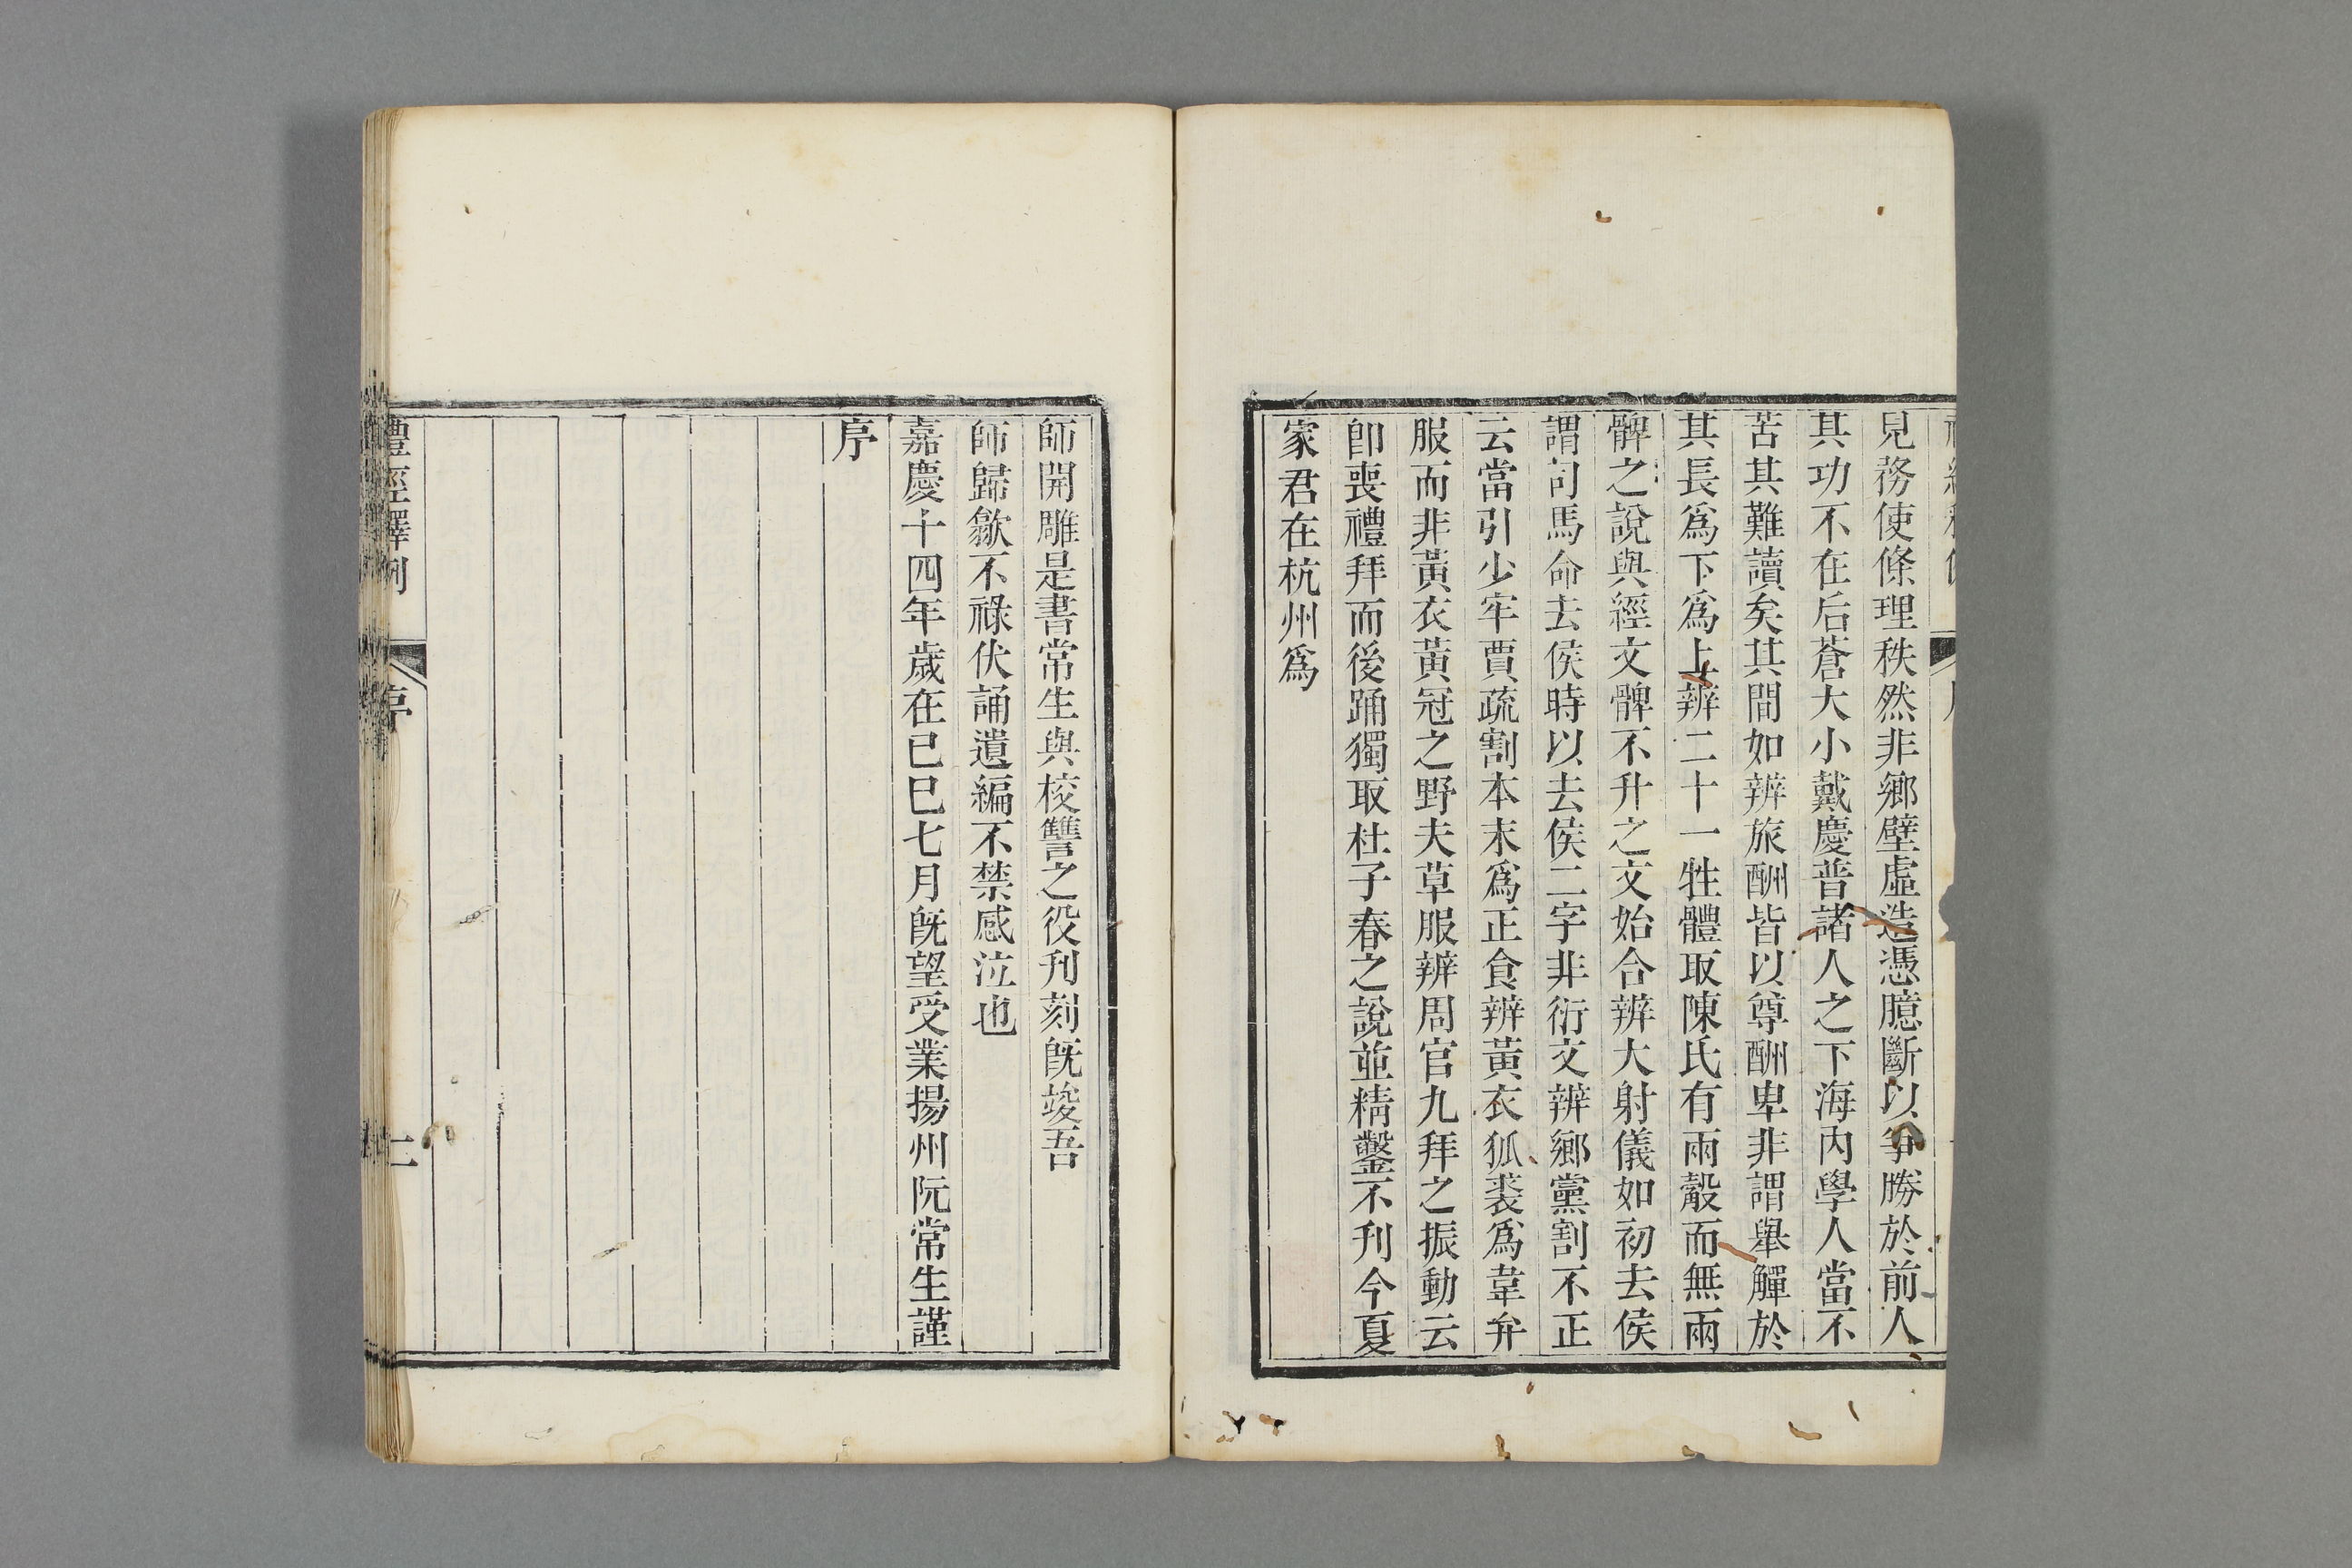 見務使條理秩然非鄉壁虛造憑臆斷以爭勝於前人
其功不在后蒼大小戴慶普諸人之下海內學人當不
苦其難讀矣其間如辨旅酬皆以尊酬卑非謂舉觶於
其長爲下爲上辨二十一牲體取陳氏有兩觳而無兩
髀之說與經文髀不升之文始合辨大射儀如初去侯
謂司馬命去侯時以去侯二字非衍文辨鄉黨割不正
云當引少牢賈疏割本末爲正食辨黃衣狐裘爲韋弁
服而非黃衣黃冠之野夫草服辨周官九拜之振動云
卽喪禮拜而後踊獨取杜子春之說並精鑿不刊今夏
家君在杭州爲
師開雕是書常生與校讐之役刋刻旣竣吾
師歸歙不祿伏誦遺編不禁感泣也
嘉慶十四年歲在己巳七月旣望受業揚州阮常生謹
序
禮經釋例
序